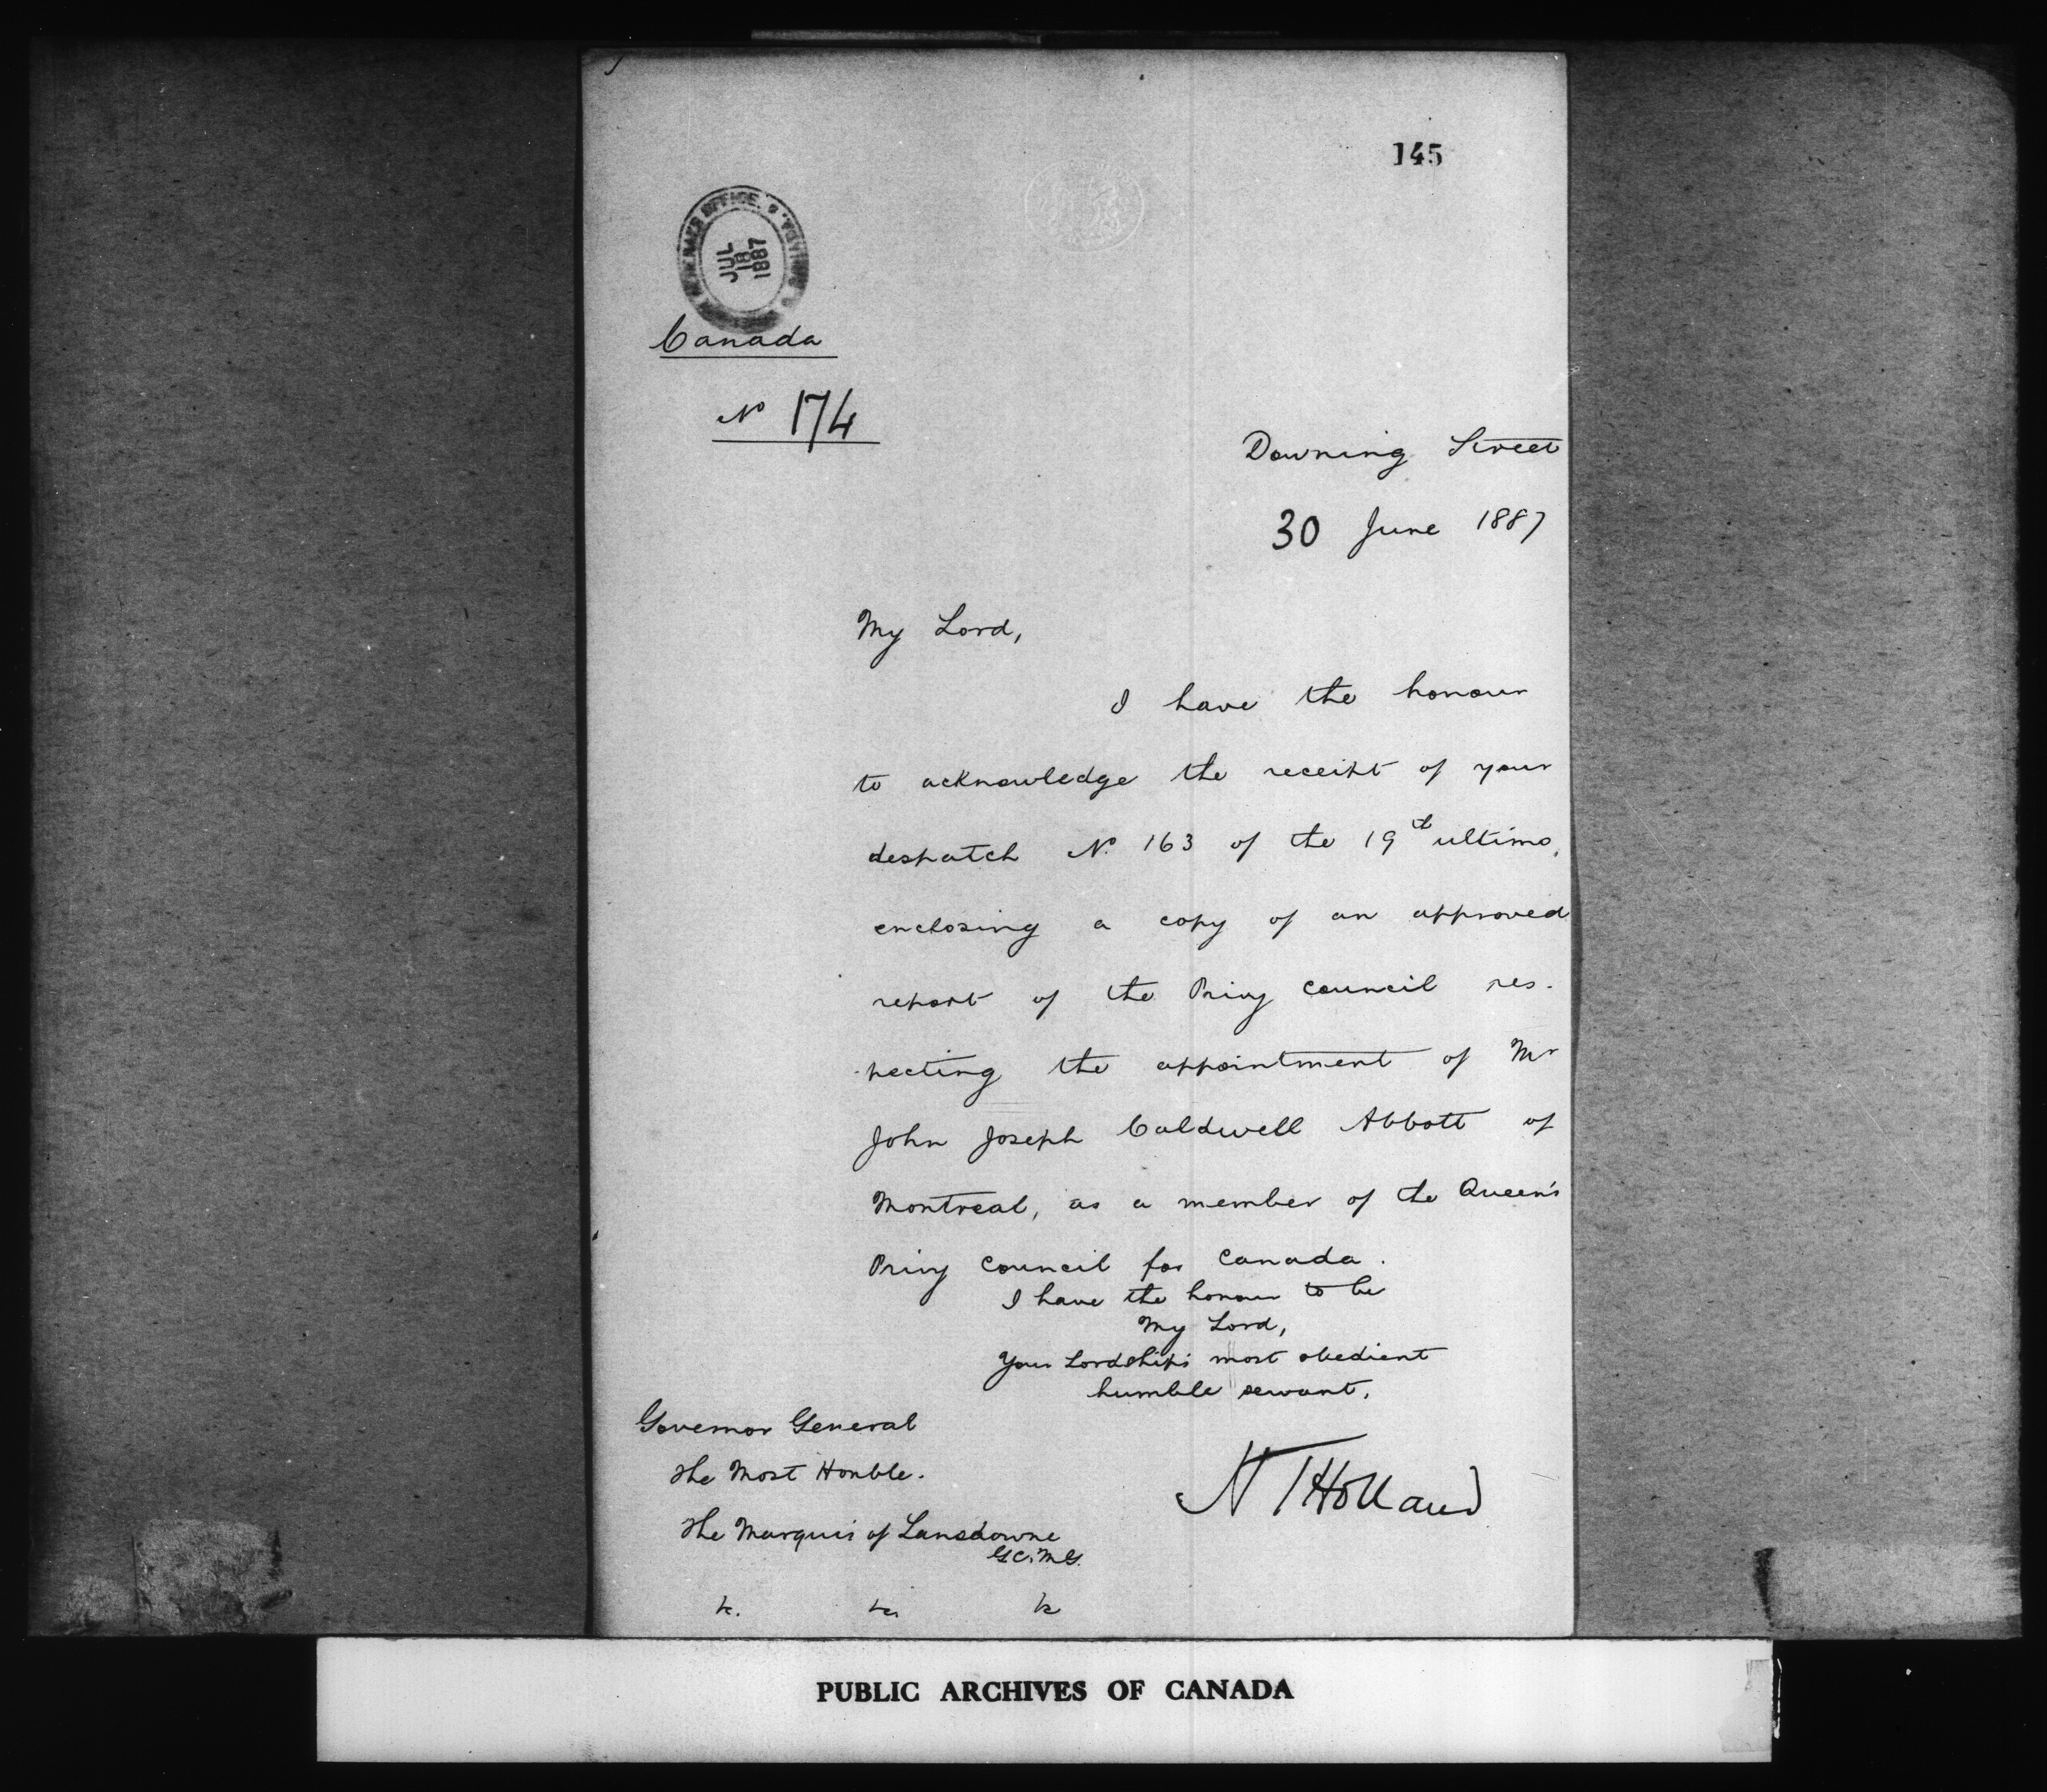 145
GENERAL'S OFFICE.
CANADA.
JUL
18
1887
Canada
No 174
Downing Street
30 June 1887
My Lord,
I have the honour
to acknowledge the receipt of your
despatch No. 163 of the 19th ultimo,
enclosing a copy of an approved
report of the Privy Council res-
pecting the appointment of Mr
John Joseph Caldwell Abbott of
Montreal, as a member of the Queen's
Privy Council for Canada.
I have the honour to be
My Lord,
Your Lordship's most obedient
humble servant,
Governor General
The Most Honble.
H T Holland
The Marquis of Lansdowne
G.C.M.G.
&c. &c. &c
PUBLIC ARCHIVES OF CANADA